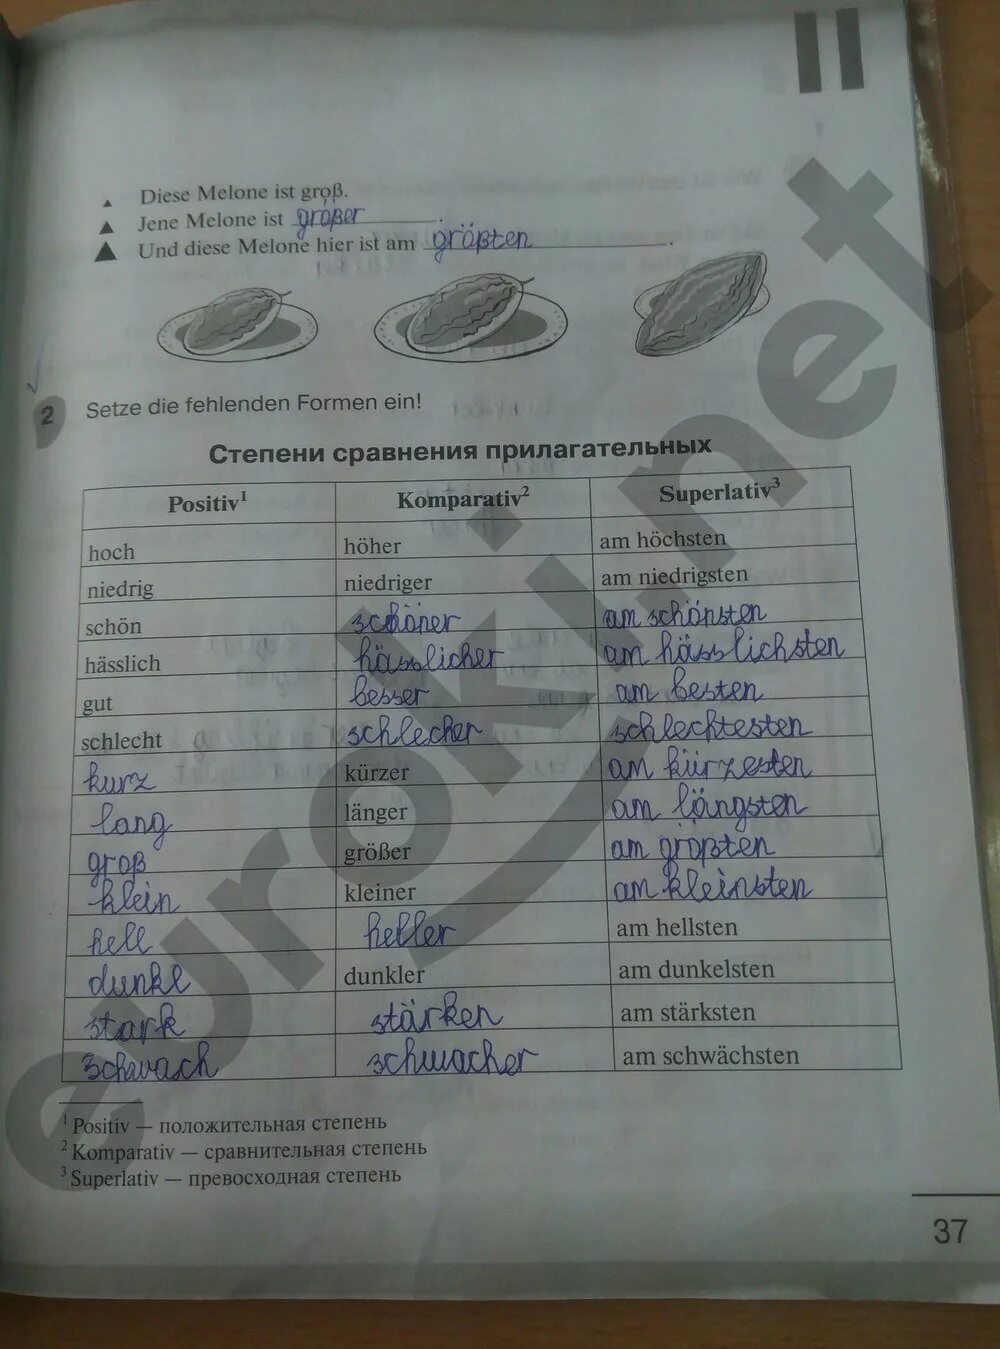 II
Diese Melone ist groß.
Jene Melone ist größer.
Und diese Melone hier ist am größten.
2 Setze die fehlenden Formen ein!
Степени сравнения прилагательных
Positiv¹ Komparativ² Superlativ³
hoch höher am höchsten
niedrig niedriger am niedrigsten
schön schöner am schönsten
hässlich hässlicher am hässlichsten
gut besser am besten
schlecht schlecher schlechtesten
kurz kürzer am kürzesten
lang länger am längsten
groß größer am größten
klein kleiner am kleinsten
hell heller am hellsten
dunkl dunkler am dunkelsten
stark stärken am stärksten
schwach schwacher am schwächsten
¹ Positiv — положительная степень
² Komparativ — сравнительная степень
³ Superlativ — превосходная степень
37
euroki.net